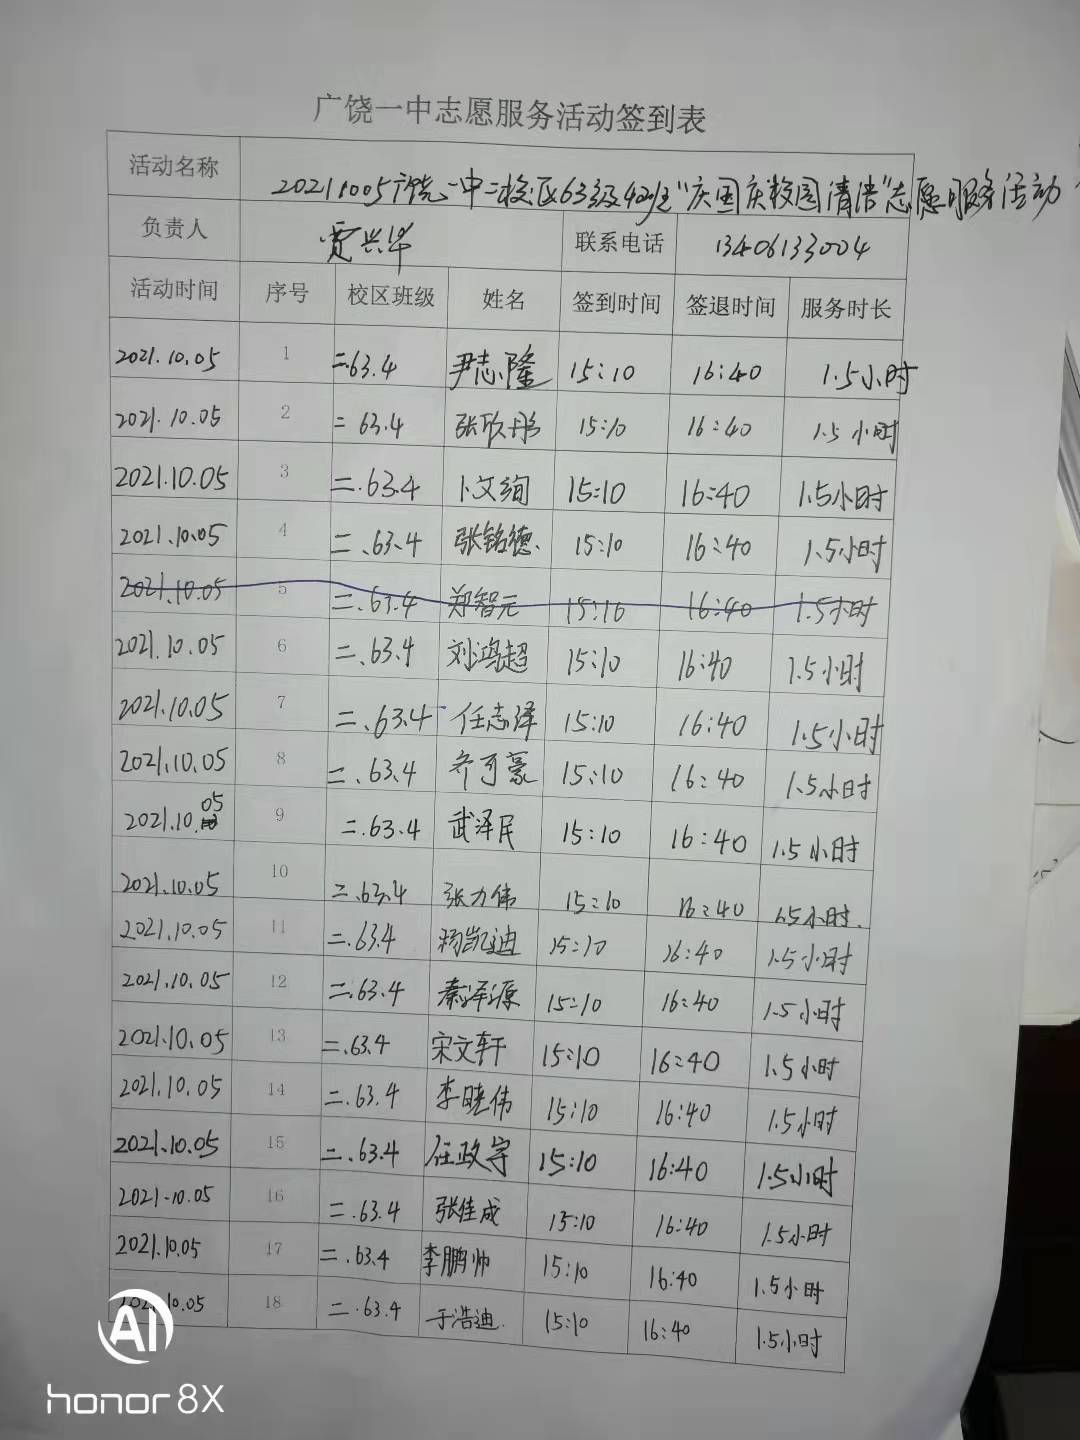 广饶一中志愿服务活动签到表
活动名称 20211005广饶一中二校区63级4班"庆国庆校园清洁"志愿服务活动
负责人 贾兴华 联系电话 13406133004
活动时间 序号 校区班级 姓名 签到时间 签退时间 服务时长
2021.10.05 1 二.63.4 尹志隆 15:10 16:40 1.5小时
2021.10.05 2 二 63.4 张欣彤 15:10 16:40 1.5小时
2021.10.05 3 二.63.4 卜文绚 15:10 16:40 1.5小时
2021.10.05 4 二、63.4 张铭德. 15:10 16:40 1.5小时
2021.10.05 5 二.63.4 郑智元 15:10 16:40 1.5小时
2021.10.05 6 二、63.4 刘鸿超 15:10 16:40 1.5小时
2021.10.05 7 二、63.4 任志泽 15:10 16:40 1.5小时
2021.10.05 8 二、63.4 齐可豪 15:10 16:40 1.5小时
2021.10.05 9 二.63.4 武泽民 15:10 16:40 1.5小时
2021.10.05 10 二.63.4 张力伟 15:10 16:40 1.5小时.
2021.10.05 11 二.63.4 杨凯迪 15:10 16:40 1.5小时
2021.10.05 12 二.63.4 秦泽源 15:10 16:40 1.5小时
2021.10.05 13 二.63.4 宋文轩 15:10 16:40 1.5小时
2021.10.05 14 二.63.4 李晓伟 15:10 16:40 1.5小时
2021.10.05 15 二、63.4 任政宇 15:10 16:40 1.5小时
2021.10.05 16 二.63.4 张佳成 15:10 16:40 1.5小时
2021.10.05 17 二.63.4 李鹏帅 15:10 16:40 1.5小时
2021.10.05 18 二.63.4 于浩迪. 15:10 16:40 1.5小时
AI
honor 8X